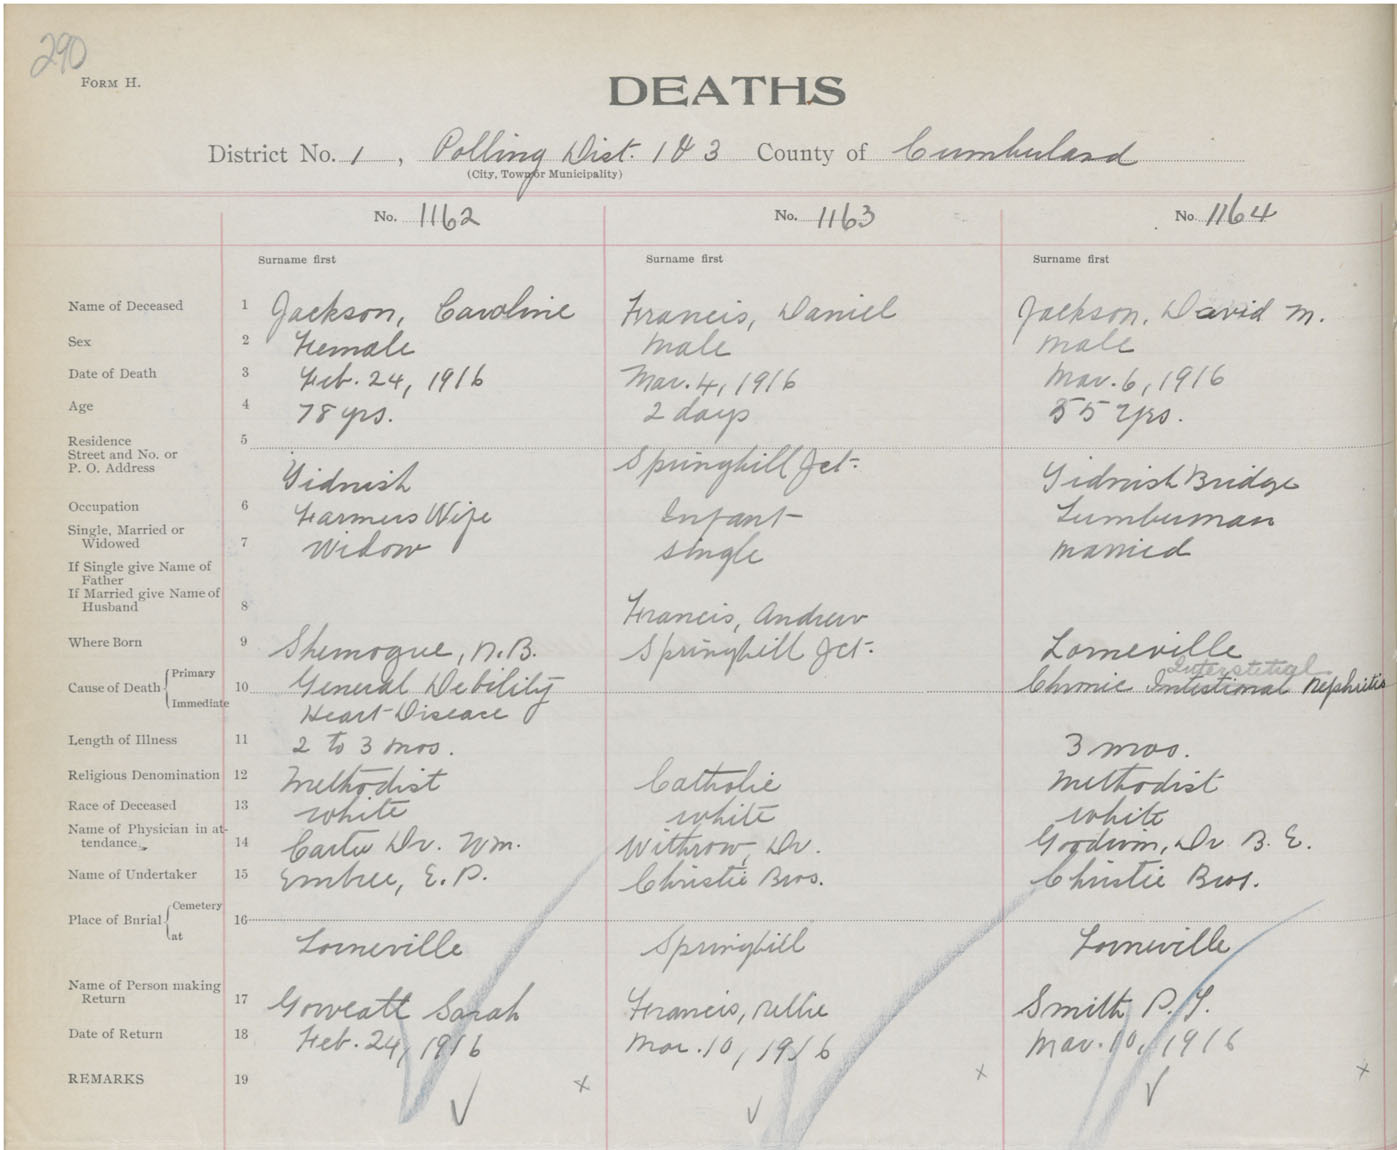 290
FORM H.
DEATHS
District No. 1, Polling Dist. 1 & 3 County of Cumberland
(City, Town or Municipality)
No. 1162 No. 1163 No. 1164
Surname first Surname first Surname first
Name of Deceased 1 Jackson, Caroline Francis, Daniel Jackson, David M.
Sex 2 Female Male Male
Date of Death 3 Feb. 24, 1916 Mar. 4, 1916 Mar. 6, 1916
Age 4 78 yrs. 2 days 55 yrs.
Residence 5
Street and No. or
P. O. Address Tidnish Springhill Jct. Tidnish Bridge
Occupation 6 Farmers Wife Infant Lumberman
Single, Married or
Widowed 7 Widow Single Married
If Single give Name of
Father
If Married give Name of
Husband 8 Francis, Andrew
Where Born 9 Shemogue, N.B. Springhill Jct. Lorneville
Interstetial
Cause of Death { Primary 10 General Debility Chronic Intestional Nephritis
Immediate Heart Disease
Length of Illness 11 2 to 3 mos. 3 mos.
Religious Denomination 12 Methodist Catholic Methodist
Race of Deceased 13 White White White
Name of Physician in at-
tendance 14 Carter Dr. Wm. Withrow, Dr. Goodwin, Dr B. E.
Name of Undertaker 15 Embree, E. P. Christie Bros. Christie Bros.
Place of Burial { Cemetery 16
at Lorneville Springhill Lorneville
Name of Person making
Return 17 Sarah Francis, Nellie Smith P. T.
Date of Return 18 Feb. 24, 1916 Mar. 10, 1916 Mar. 10, 1916
REMARKS 19 x x x